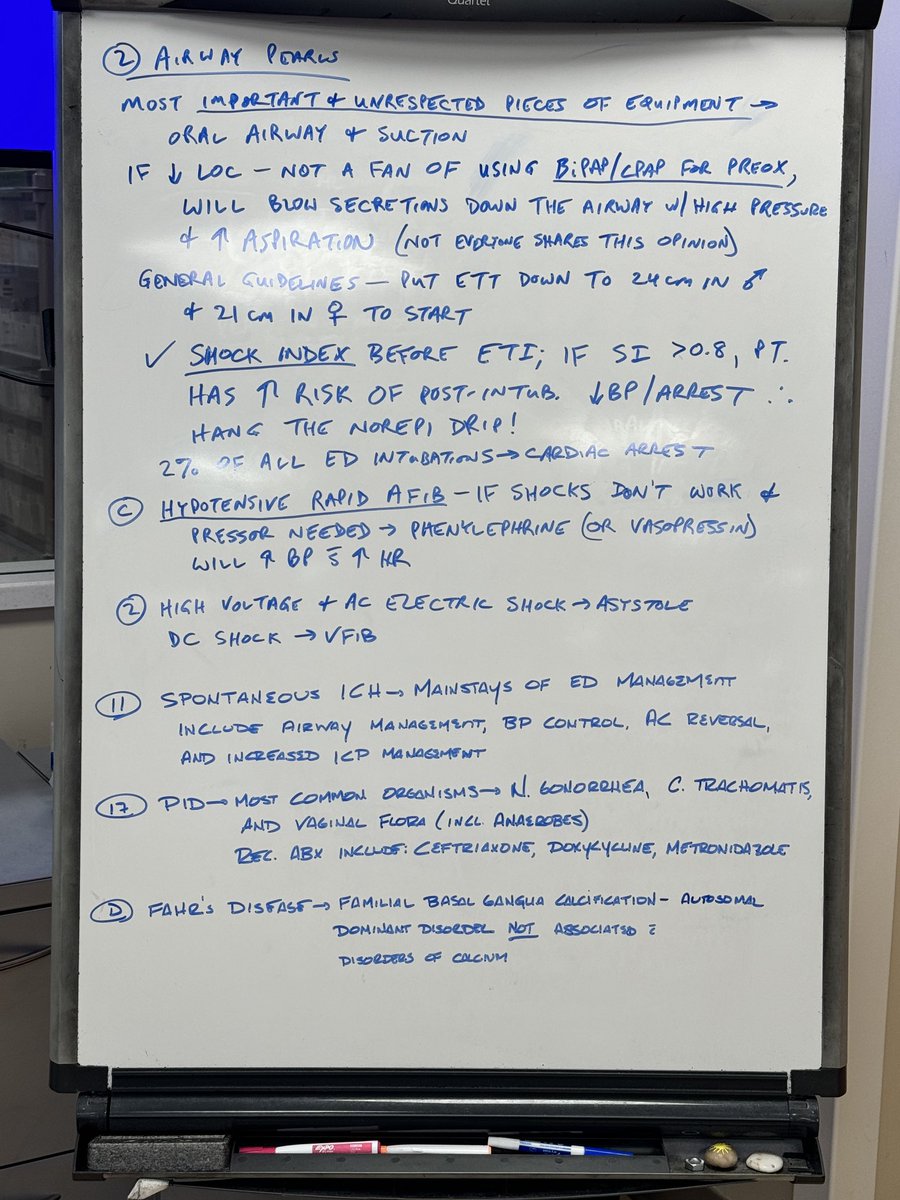 Quartet
② AIRWAY PEARLS
MOST IMPORTANT & UNRESPECTED PIECES OF EQUIPMENT →
ORAL AIRWAY & SUCTION
IF ↓ LOC – NOT A FAN OF USING BiPAP/CPAP FOR PREOX,
WILL BLOW SECRETIONS DOWN THE AIRWAY W/HIGH PRESSURE
& ↑ ASPIRATION (NOT EVERYONE SHARES THIS OPINION)
GENERAL GUIDELINES – PUT ETT DOWN TO 24 CM IN ♂
& 21 CM IN ♀ TO START
✓ SHOCK INDEX BEFORE ETI; IF SI >0.8, PT.
HAS ↑ RISK OF POST-INTUB. ↓BP/ARREST ∴
HANG THE NOREPI DRIP!
2% OF ALL ED INTUBATIONS → CARDIAC ARREST
Ⓒ HYPOTENSIVE RAPID AFIB – IF SHOCKS DON'T WORK &
PRESSOR NEEDED → PHENYLEPHRINE (OR VASOPRESSIN)
WILL ↑ BP s̄ ↑ HR
② HIGH VOLTAGE & AC ELECTRIC SHOCK → ASYSTOLE
DC SHOCK → VFIB
⑪ SPONTANEOUS ICH → MAINSTAYS OF ED MANAGEMENT
INCLUDE AIRWAY MANAGEMENT, BP CONTROL, AC REVERSAL,
AND INCREASED ICP MANAGEMENT
⑰ PID → MOST COMMON ORGANISMS → N. GONORRHEA, C. TRACHOMATIS,
AND VAGINAL FLORA (INCL. ANAEROBES)
REC. ABX INCLUDE: CEFTRIAXONE, DOXYCYCLINE, METRONIDAZOLE
Ⓓ FAHR'S DISEASE → FAMILIAL BASAL GANGLIA CALCIFICATION – AUTOSOMAL
DOMINANT DISORDER NOT ASSOCIATED c̄
DISORDERS OF CALCIUM
EXPO